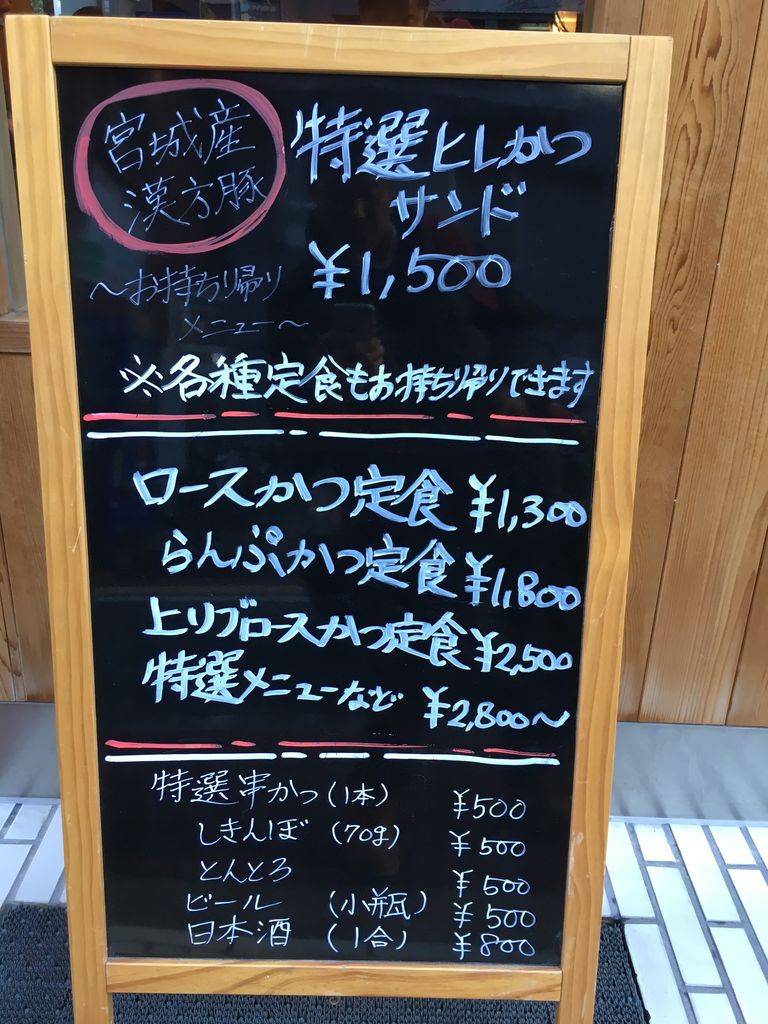 宮城産
漢方豚
特選ヒレかつ
サンド
¥1,500
～お持ち帰り
メニュー～
※各種定食もお持ち帰りできます
ロースかつ定食 ¥1,300
らんぷかつ定食 ¥1,800
上リブロースかつ定食 ¥2,500
特選メニューなど ¥2,800～
特選串かつ(1本) ¥500
しきんぼ (70g) ¥500
とんとろ ¥500
ビール (小瓶) ¥500
日本酒 (1合) ¥800